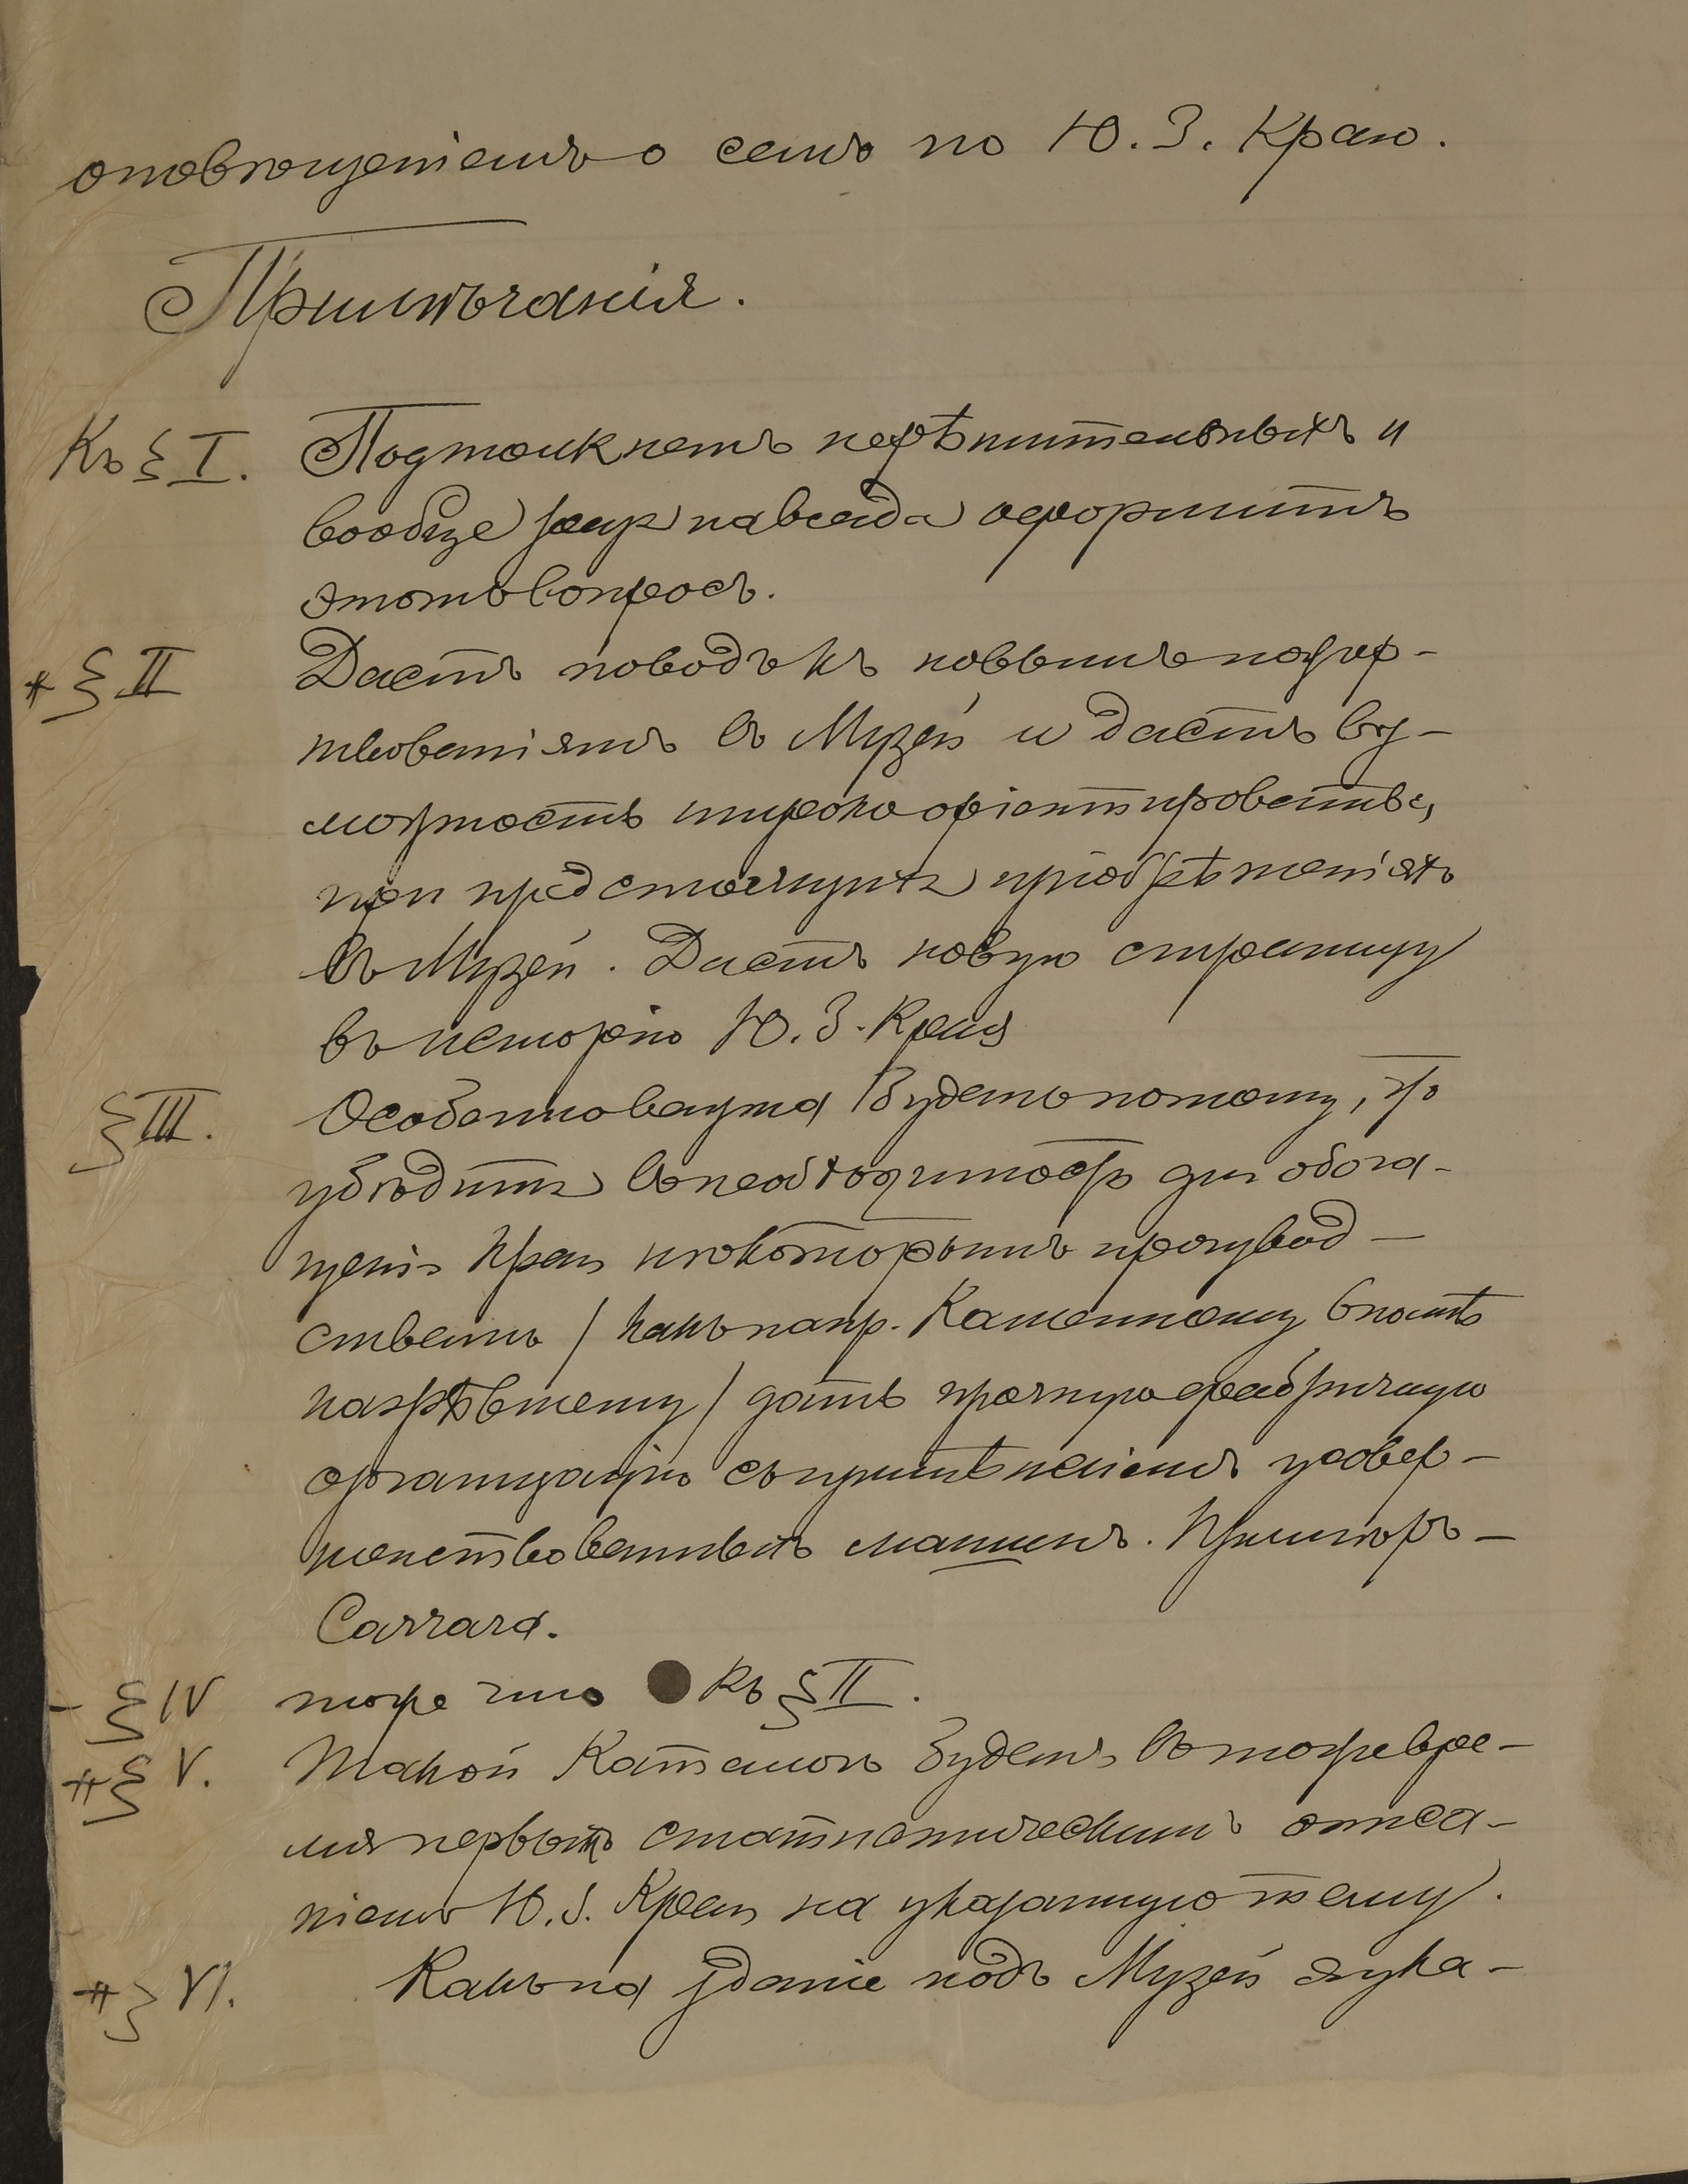 оповѣщеніемъ о семъ по Ю. З. Краю.
Примѣчанія.
Къ § I. Подтолкнетъ нерѣшительныхъ и
вообще разъ навсегда оформитъ
этотъ вопросъ.
* § II Дастъ поводъ къ новымъ пожер-
твованіямъ въ Музей и дастъ воз-
можность широко оріентироваться,
при предстоящихъ пріобрѣтеніяхъ
въ Музей. Дастъ новую страницу
въ исторію Ю. З. Края
§ III. Особенно важна будетъ потому, что
убѣдитъ въ необходимость для обога-
щенія Края нѣкоторымъ производ-
ствамъ / какъ напр. Каменному вполнѣ
назрѣвшему / дать прочную фабричную
организацію съ примѣненіемъ усовер-
шенствованныхъ машинъ. Примѣръ –
Carrara.
– § IV тоже что къ § II.
# § V. Такой Каталогъ будетъ въ тоже вре-
мя первымъ статистическимъ описа-
ніемъ Ю. З. Края на указанную тему.
# § VI. Какъ на зданіе подъ Музей я ука-